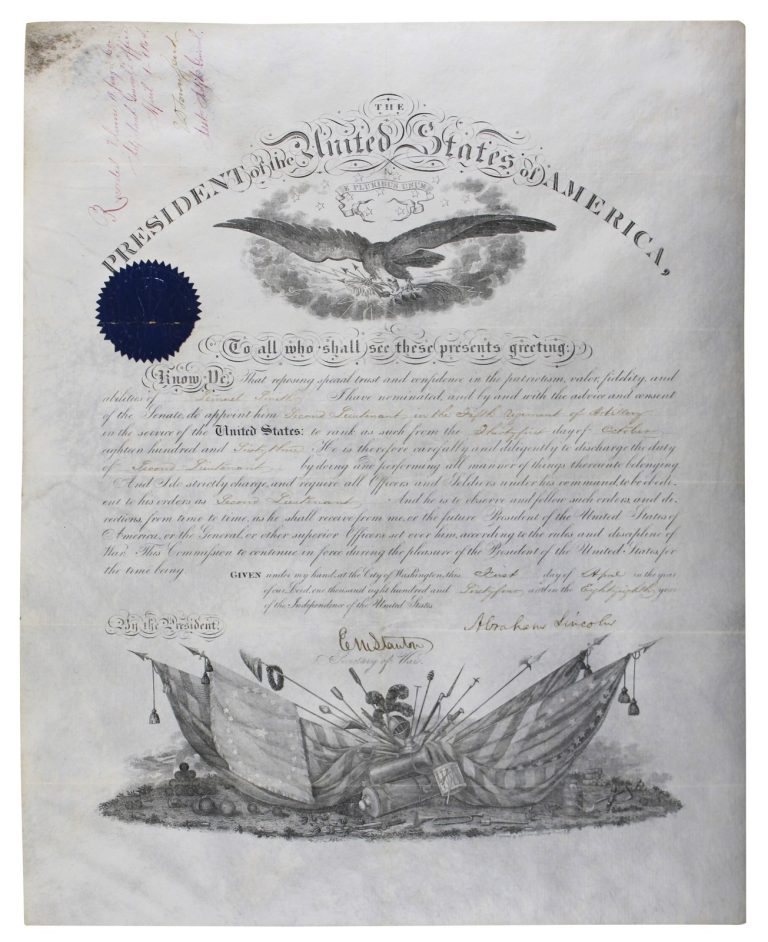 Recorded Volume
Adjt. General's Office
April 1st 1864
Asst Adjt General.
THE
PRESIDENT of the United States of AMERICA,
E PLURIBUS UNUM
To all who shall see these presents greeting:
Know Ye, That reposing special trust and confidence in the patriotism, valor, fidelity, and
abilities of Samuel I have nominated, and by and with the advice and consent
of the Senate do appoint him Second Lieutenant in the Fifth regiment of Artillery
in the service of the United States: to rank as such from the Thirty first day of October
eighteen hundred and Sixty three. He is therefore carefully and diligently to discharge the duty
of Second Lieutenant by doing and performing all manner of things thereunto belonging.
And I do strictly charge and require all Officers and Soldiers under his command, to be obedi-
ent to his orders as Second Lieutenant. And he is to observe and follow such orders, and di-
rections, from time to time, as he shall receive from me, or the future President of the United States of
America, or the General, or other superior Officers set over him, according to the rules and discipline of
War. This Commission to continue in force during the pleasure of the President of the United States, for
the time being.
GIVEN under my hand, at the City of Washington, this First day of April in the year
of our Lord, one thousand eight hundred and Sixty four and in the Eighty eighth year
of the Independence of the United States.
By the President,
Abraham Lincoln
E M Stanton
Secretary of War.